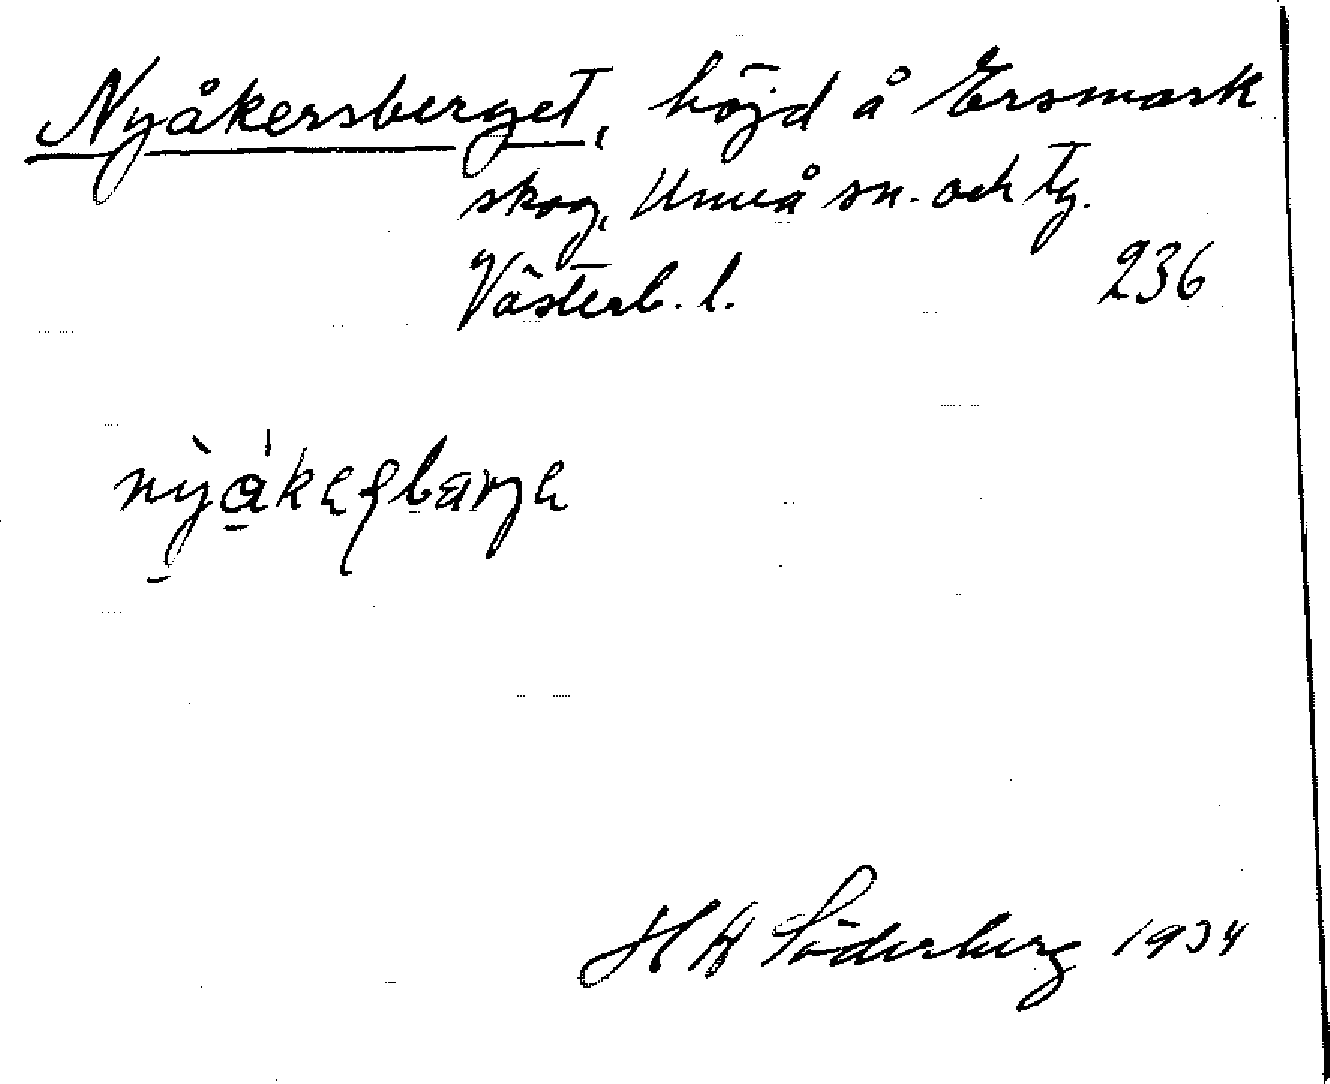 Nyåkersberget, höjd å Ersmark
skog, Umeå sn. och tg.
Västerb. l. 236
H W Söderberg 1934